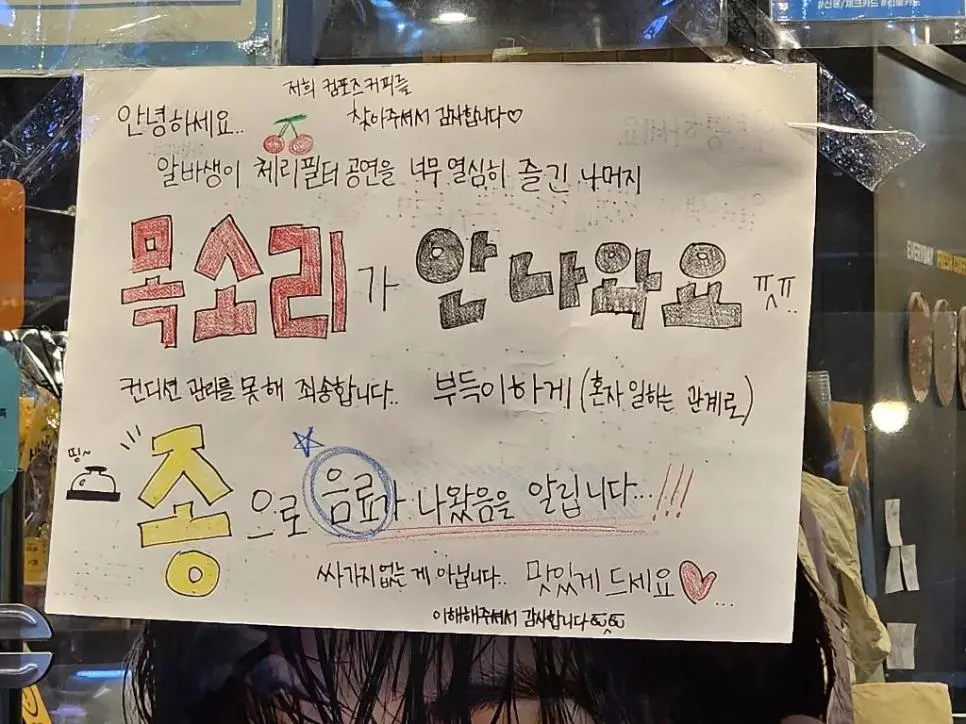 #신용/체크카드 #선불카드
저희 컴포즈커피를
안녕하세요.. 찾아주셔서 감사합니다♡
알바생이 체리필터 공연을 너무 열심히 즐긴 나머지
목소리가 안 나와요 ㅠㅅㅠ..
컨디션 관리를 못해 죄송합니다.. 부득이하게 (혼자 일하는 관계로)
띵~
종으로 음료가 나왔음을 알립니다...!!!
싸가지 없는 게 아닙니다.. 맛있게 드세요♡...
이해해주셔서 감사합니다
EVERYDAY FRESH COFFEE